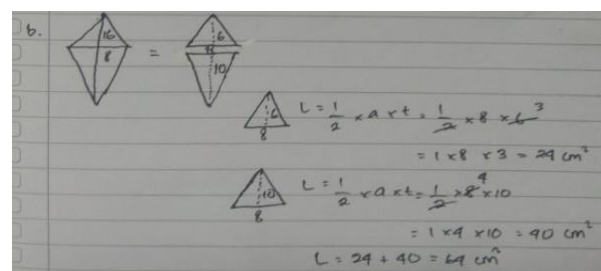 6.
16
8
=
6
8
10
6
8
L = 1/2 × a × t = 1/2 × 8 × 6 3
= 1 × 8 × 3 = 24 cm²
10
8
L = 1/2 × a × t = 1/2 × 8 4 × 10
= 1 × 4 × 10 = 40 cm²
L = 24 + 40 = 64 cm²